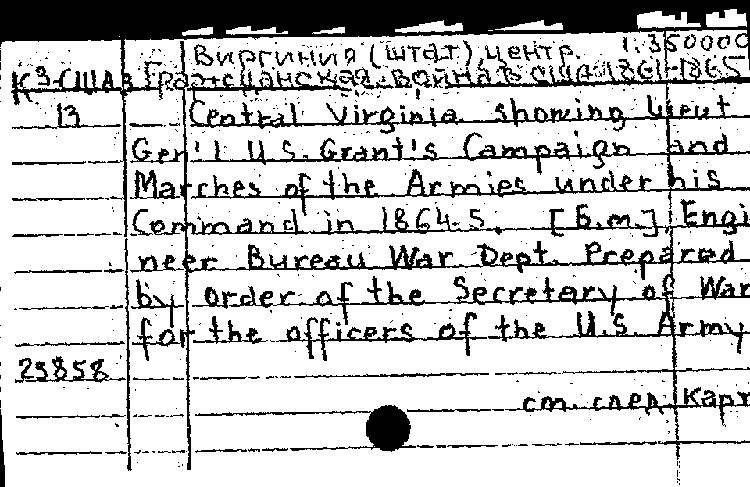 Виргиния (штат), центр. 1:350000
К3-США3 Гражданская война в США 1861-1865
13 Central Virginia showing Lieut
Gen'l U.S. Grant's Campaign and
Marches of the Armies under his
Command in 1864-5. [Б.м.], Engi
neer Bureau War Dept. Prepared
by order of the Secretary of War
for the officers of the U.S. Army
25858
см. след. карт